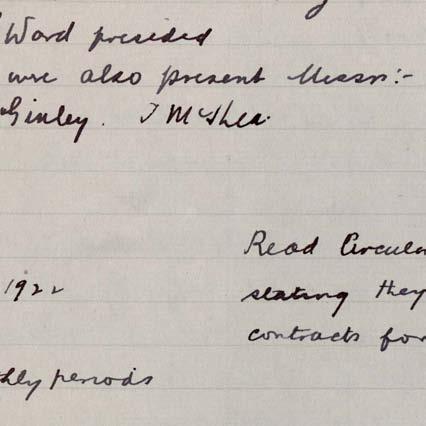 Ward presided
were also present Messrs:-
Ginley. J McShea.
Read Circular
1922
stating they
contracts for
thly periods